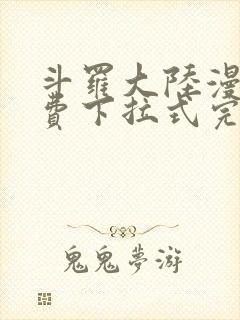 斗羅大陸漫
費下拉式完
鬼鬼夢游